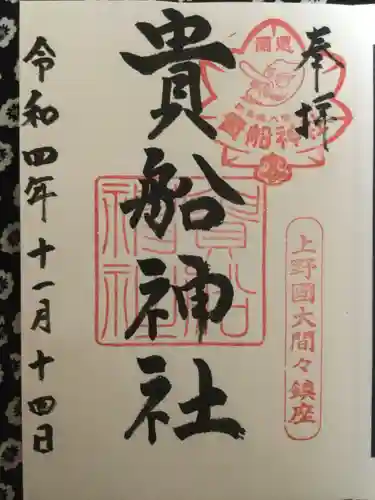 奉拝
開運
貴船神社
上野國大間々鎮座
貴船神社
貴船
神社
令和四年十一月十四日